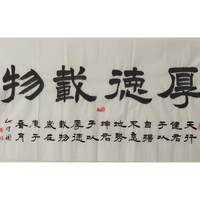 厚德載物
天行
健君
子以
自强
不息
地势
坤君
子以
厚德
載物
歲在
庚子
春月